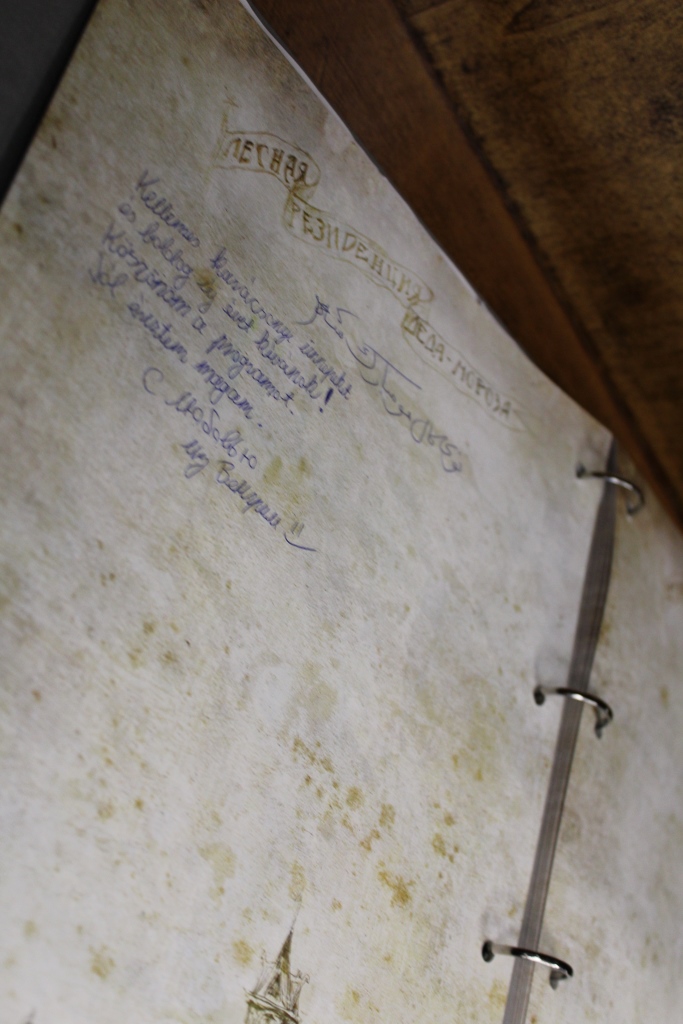 ЛЕСНАЯ
РЕЗИДЕНЦИЯ
ДЕДА-МОРОЗА
Kellemes karácsony ünnepeket
és boldog új évet kívánok!
Köszönöm a programot.
Jól éreztem magam.
С любовью
из Венгрии